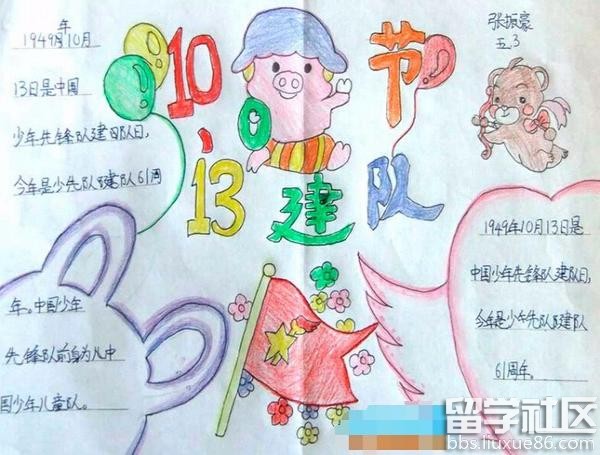 年
1949年10月
13日是中国
少年先锋队建队日,
今年是少先队建队61周
年。中国少年
先锋队前身为儿中
国少年儿童队。
10、13
建队节
张振豪
五.3
1949年10月13日是
中国少年先锋队建队日,
今年是少年先队建队
61周年。
留学社区
bbs.liuxue86.com